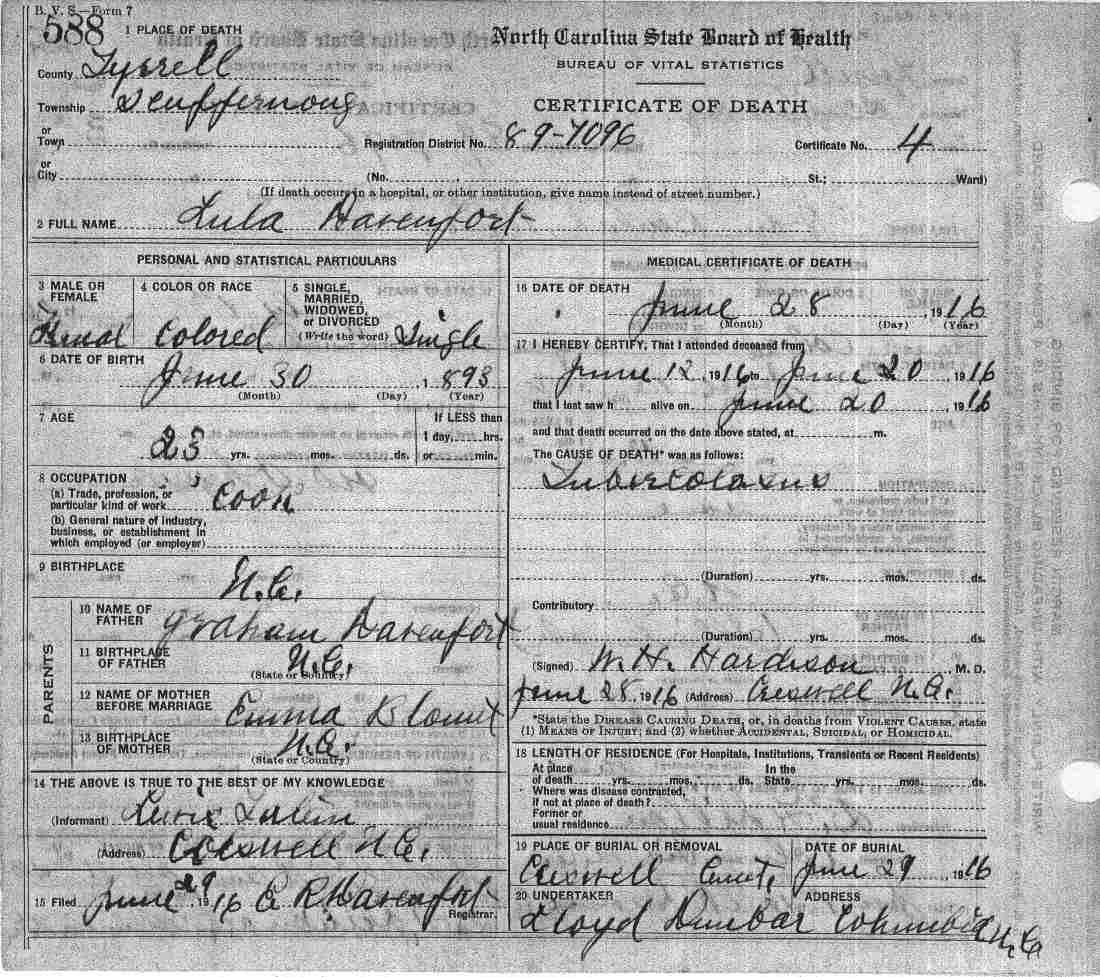 B. V. S.—Form 7
588
1 PLACE OF DEATH
County Tyrrell
Township Scuppernong
or
Town
or
City
North Carolina State Board of Health
BUREAU OF VITAL STATISTICS
CERTIFICATE OF DEATH
Registration District No. 89-7096 Certificate No. 4
(No. St.; Ward)
(If death occurs in a hospital, or other institution, give name instead of street number.)
2 FULL NAME Lula Davenport
PERSONAL AND STATISTICAL PARTICULARS
3 MALE OR FEMALE
4 COLOR OR RACE Colored
5 SINGLE, MARRIED, WIDOWED, or DIVORCED
(Write the word) Single
6 DATE OF BIRTH
June 30, 1893
(Month) (Day) (Year)
7 AGE
23 yrs. mos. ds.
If LESS than
1 day hrs.
or min.
8 OCCUPATION
(a) Trade, profession, or
particular kind of work
(b) General nature of industry,
business, or establishment in
which employed (or employer)
9 BIRTHPLACE
N.C.
PARENTS
10 NAME OF FATHER Graham Davenport
11 BIRTHPLACE OF FATHER N.C.
(State or Country)
12 NAME OF MOTHER BEFORE MARRIAGE Emma Blount
13 BIRTHPLACE OF MOTHER N.C.
(State or Country)
14 THE ABOVE IS TRUE TO THE BEST OF MY KNOWLEDGE
(Informant) Lewis
(Address) Creswell N.C.
15 Filed June 29 1916 C R Davenport
Registrar.
MEDICAL CERTIFICATE OF DEATH
16 DATE OF DEATH
June 28, 1916
(Month) (Day) (Year)
17 I HEREBY CERTIFY, That I attended deceased from
June 12 1916 to June 20 1916
that I last saw h alive on June 20 1916
and that death occurred on the date above stated, at m.
The CAUSE OF DEATH* was as follows:
Tubercolasus
(Duration) yrs. mos. ds.
Contributory
(Duration) yrs. mos. ds.
(Signed) W. H. Hardison M. D.
June 28, 1916 (Address) Creswell N.C.
*State the DISEASE CAUSING DEATH, or, in deaths from VIOLENT CAUSES, state
(1) MEANS OF INJURY; and (2) whether ACCIDENTAL, SUICIDAL, or HOMICIDAL.
18 LENGTH OF RESIDENCE (For Hospitals, Institutions, Transients or Recent Residents)
At place of death yrs. mos. ds. In the State yrs. mos. ds.
Where was disease contracted,
If not at place of death?
Former or
usual residence
19 PLACE OF BURIAL OR REMOVAL
Creswell
DATE OF BURIAL
June 29 1916
20 UNDERTAKER
Lloyd Dunbar
ADDRESS
Columbia N.C.